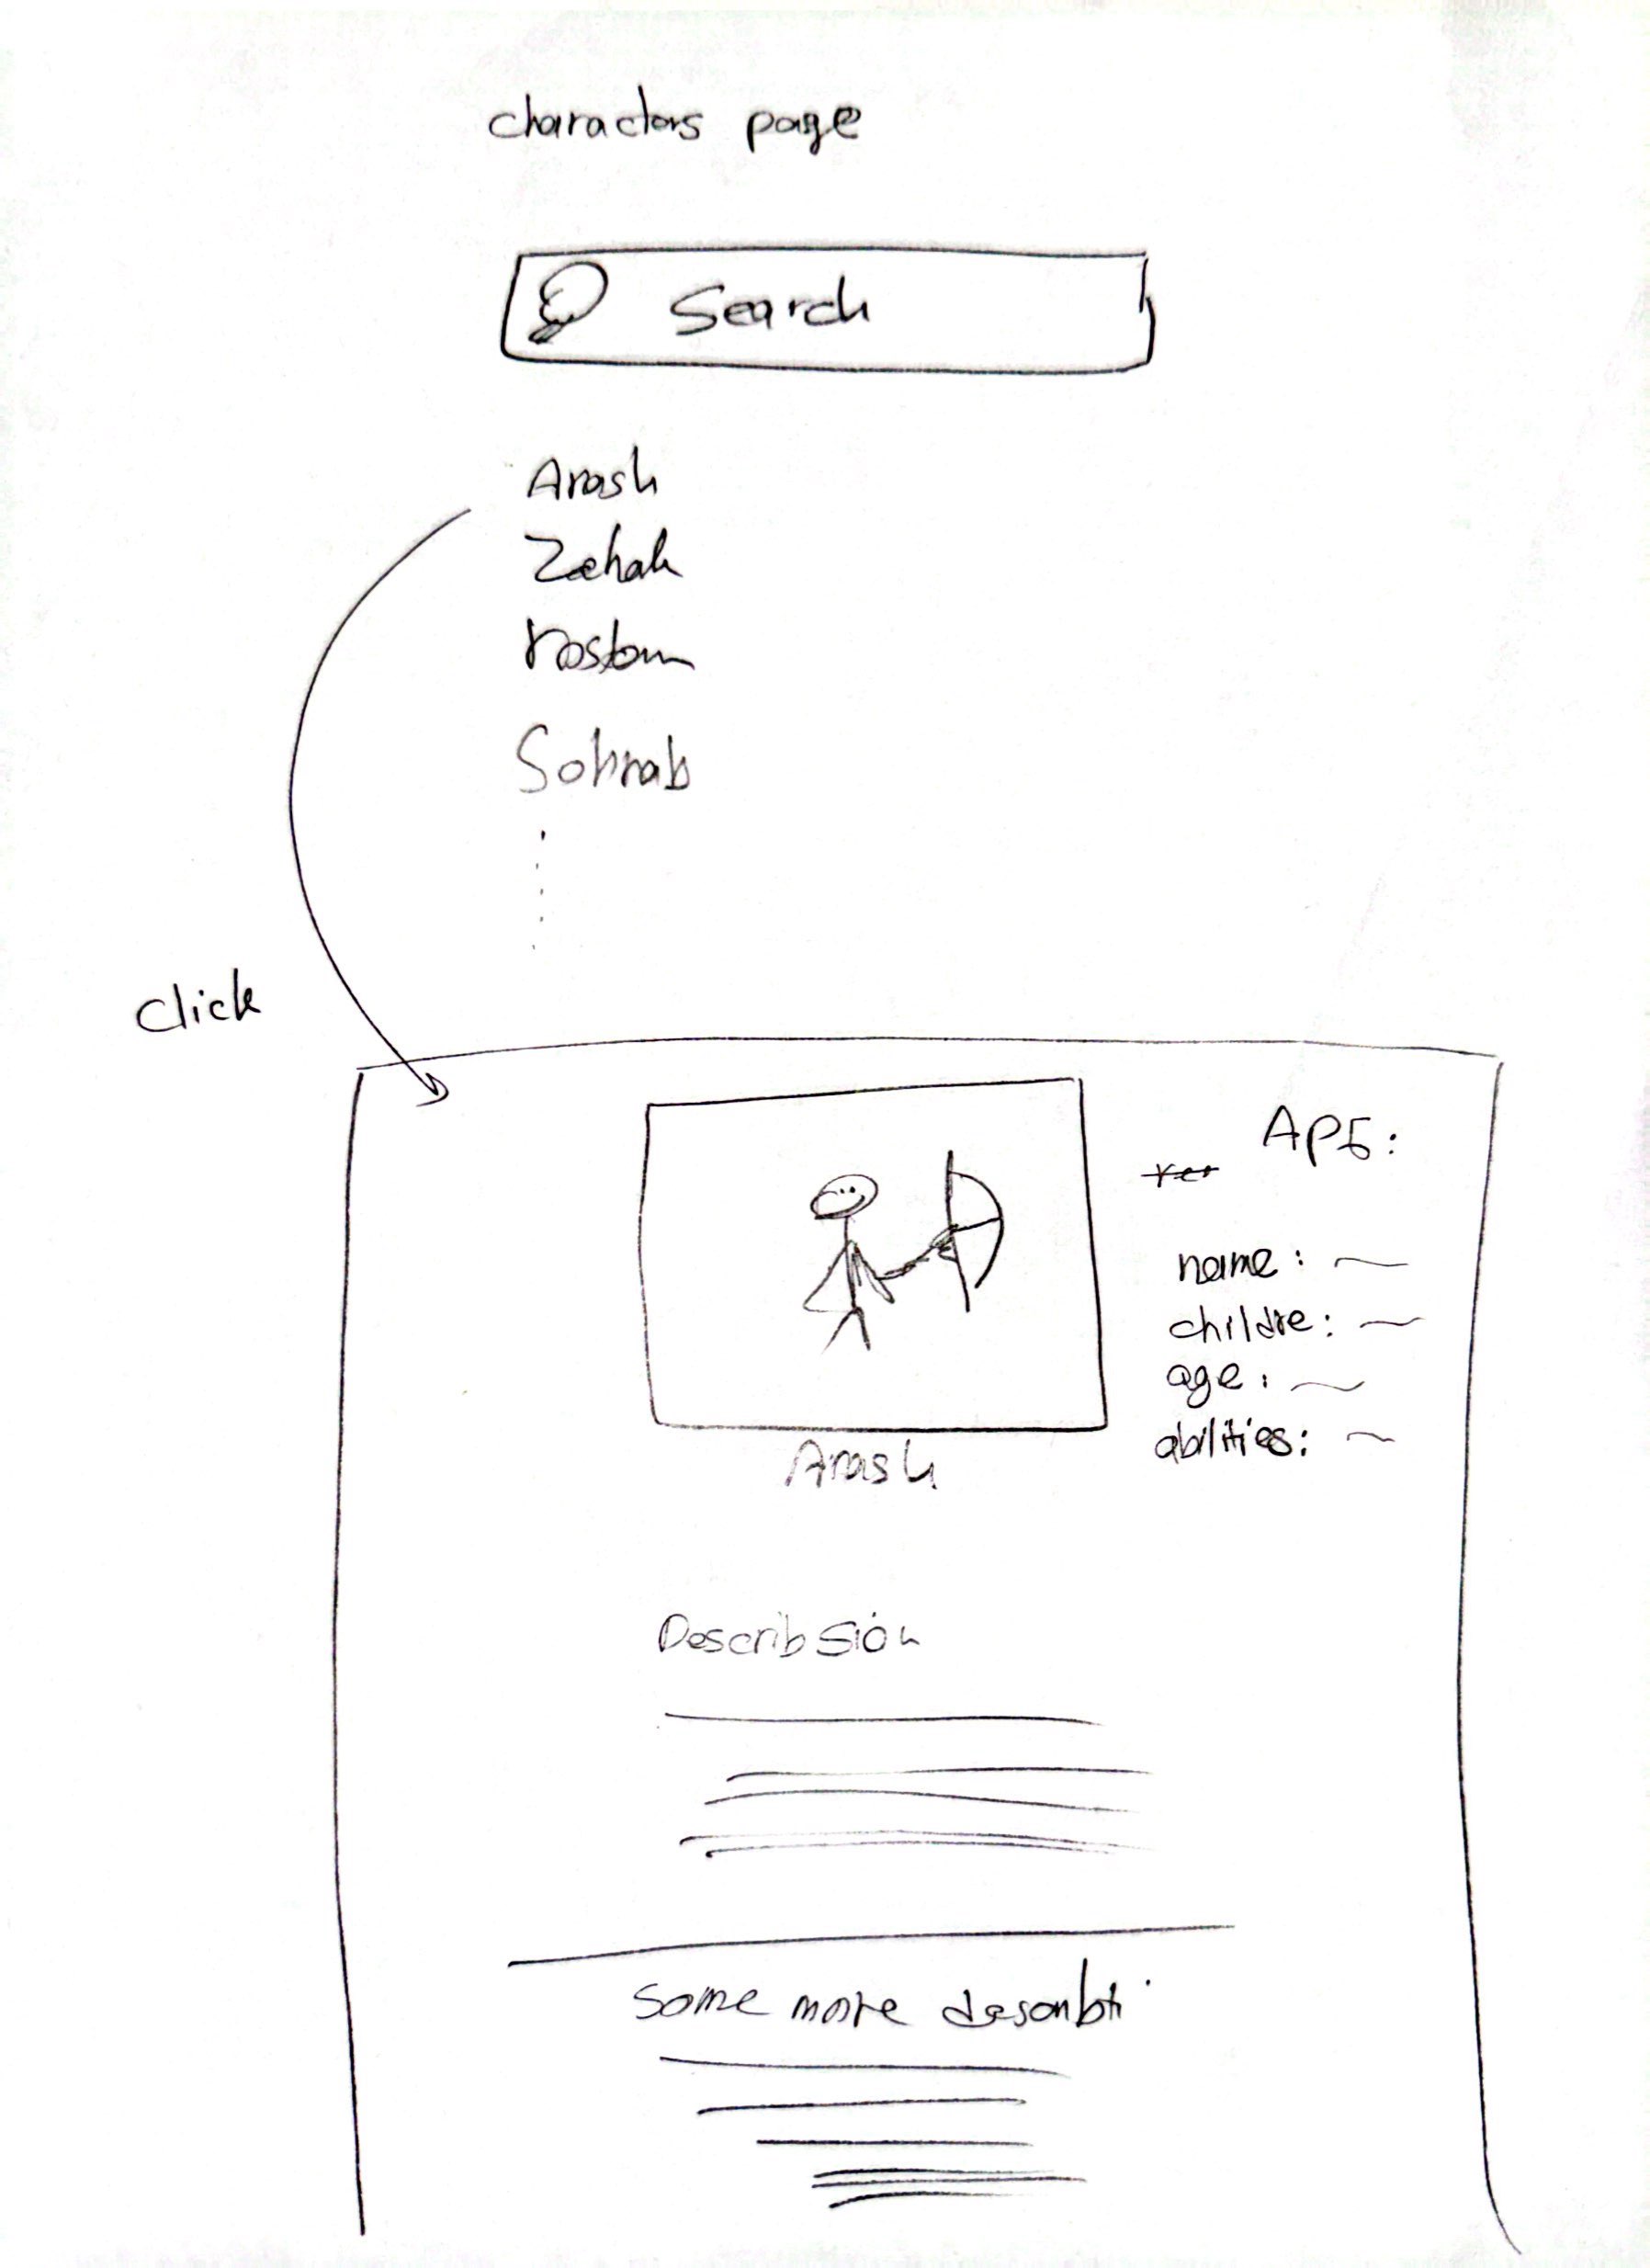 charactors page
Search
Arash
Zehak
rostam
Sohrab
Click
API:
name:
childre:
age:
abilities:
Arash
Describsion
Some more